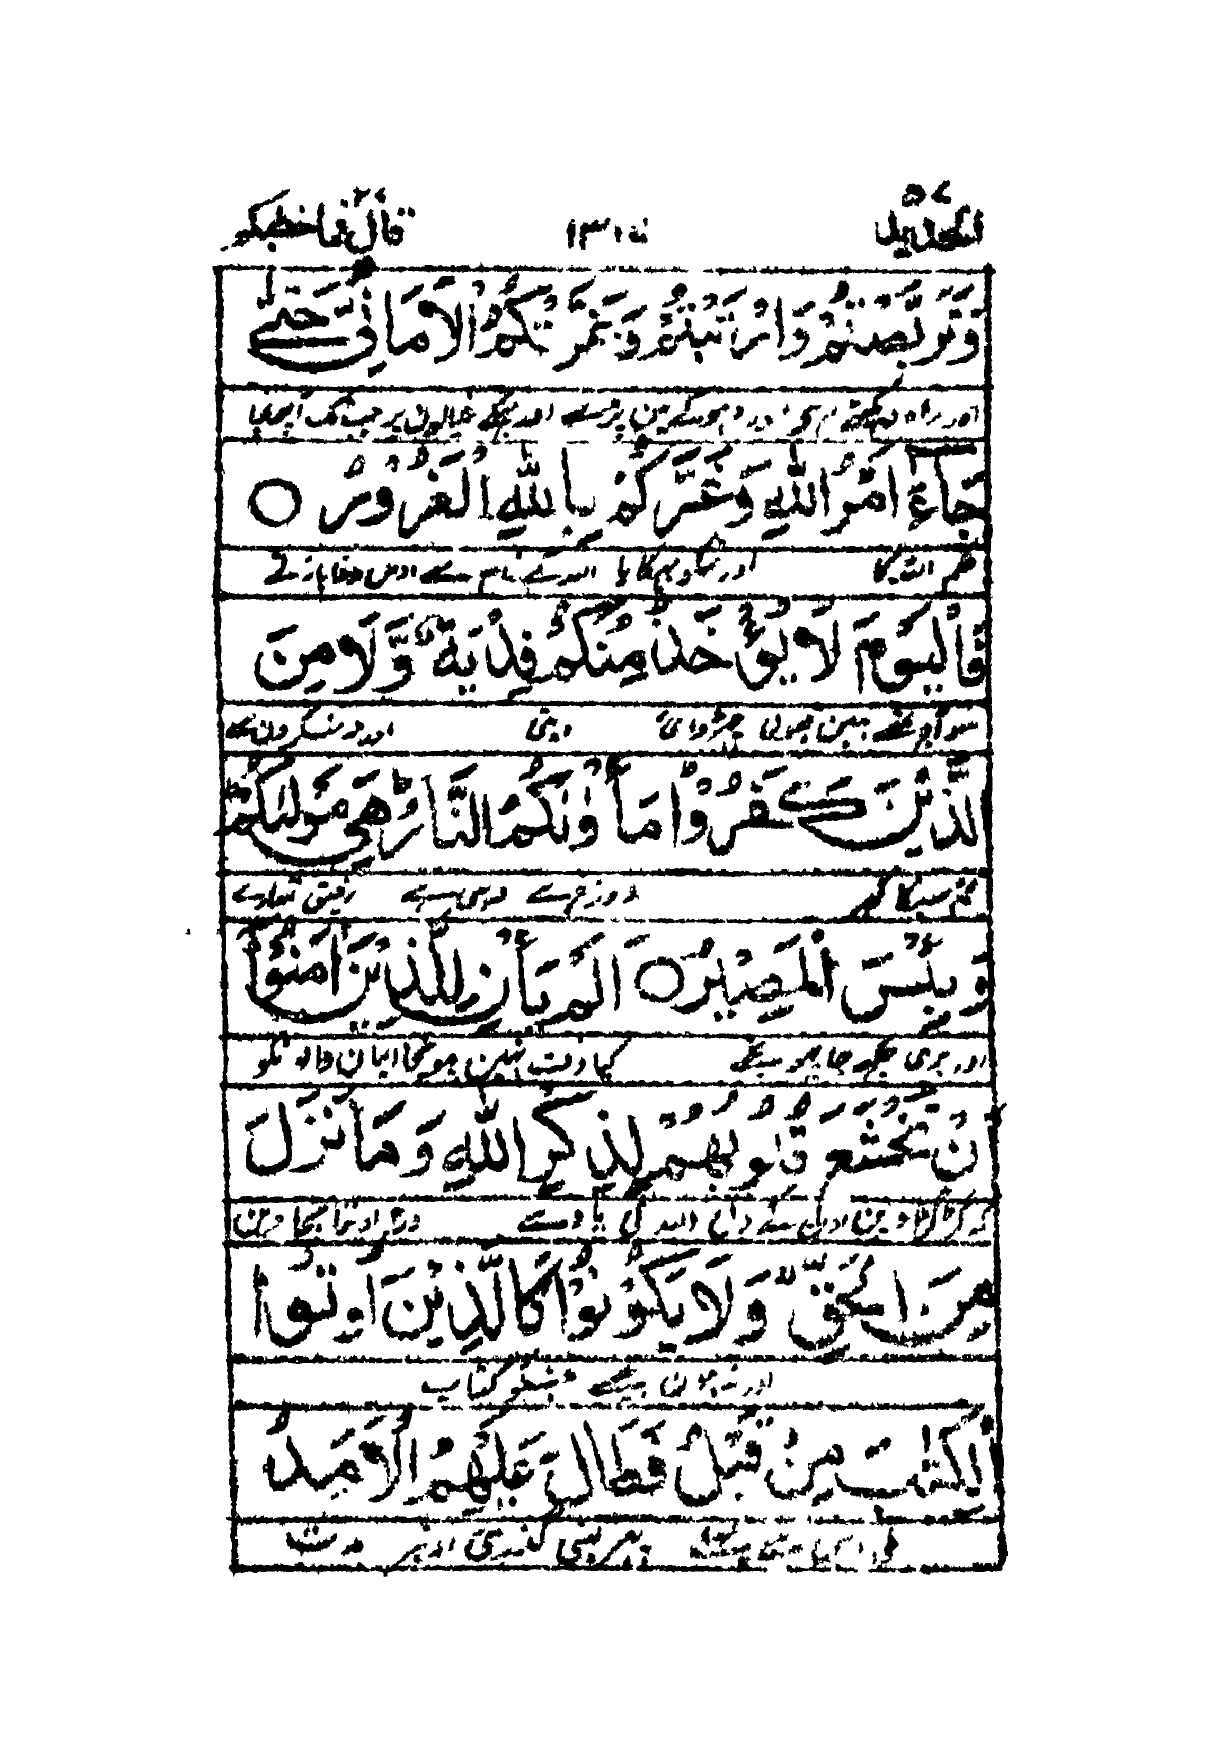 الحدید ٥٧ ١٣١٥ قال فما خطبکم ٢٧
وَتَرَبَّصْتُمْ وَارْتَبْتُمْ وَغَرَّتْكُمُ الْأَمَانِيُّ حَتّٰى
اور راہ دیکھتے اور دھوکے میں پڑے اور بہکے خیالوں پر جب تک آپہنچا
جَآءَ أَمْرُ اللّٰهِ وَغَرَّكُمْ بِاللّٰهِ الْغَرُوْرُ ○
حکم اللہ کا اور تمکو بہکایا اللہ کے نام سے اوس دغاباز نے
فَالْيَوْمَ لَا يُؤْخَذُ مِنْكُمْ فِدْيَةٌ وَّلَا مِنَ
سو آج تم سے نہیں قبول چھڑوائی دینی اور نہ منکروں سے
الَّذِيْنَ كَفَرُوْا مَأْوٰىكُمُ النَّارُ هِيَ مَوْلٰىكُمْ
تم سب کا گھر دوزخ ہے وہی ہے رفیق تمہارے
وَبِئْسَ الْمَصِيْرُ ○ أَلَمْ يَأْنِ لِلَّذِيْنَ اٰمَنُوْا
اور بری جگہ جا پہونچے کیا وقت نہیں پہونچا ایمان والونکو
أَنْ تَخْشَعَ قُلُوْبُهُمْ لِذِكْرِ اللّٰهِ وَمَا نَزَلَ
کہ گڑگڑاویں اونکے دل اللہ کی یاد سے
مِنَ الْحَقِّ وَلَا يَكُوْنُوْا كَالَّذِيْنَ أُوْتُوا
اور نہ ہوں جیسے جنکو کتاب
الْكِتٰبَ مِنْ قَبْلُ فَطَالَ عَلَيْهِمُ الْأَمَدُ
ملی اس سے پہلے پھر لنبی گذری اونپر مدت